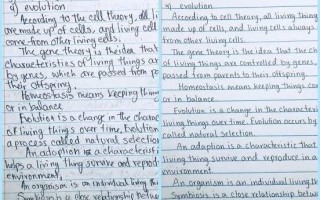 8) evolution
According to the cell theory, all li
are made up of cells, and living cell
come from other living cells.
The gene theory is the idea that
characteristics of living things ar
by genes, which are passed from p
their offspring.
Homeostasis means keeping thin
or in balance
Evolution is a change in the charac
of living things over time. Evolution
a process called natural selection
An adaption is a characteristi
helps a living thing survive and reprod
environment.
An organism is an individual living thi
Symbiosis is a close relationship betwe
evolution
According to cell theory, all living things
made up of cells, and living cells always
from other living cells.
The gene theory is the idea that the ch
of living things are controlled by genes,
passed from parents to their offspring.
Homeostasis means keeping things con
or in balance
Evolution is a change in the characteri
living things over time. Evolution occurs by
called natural selection.
An adaption is a characteristic that
living thing survive and reproduce in a
environment.
An organism is an individual living
Symbiosis is a close relationship between